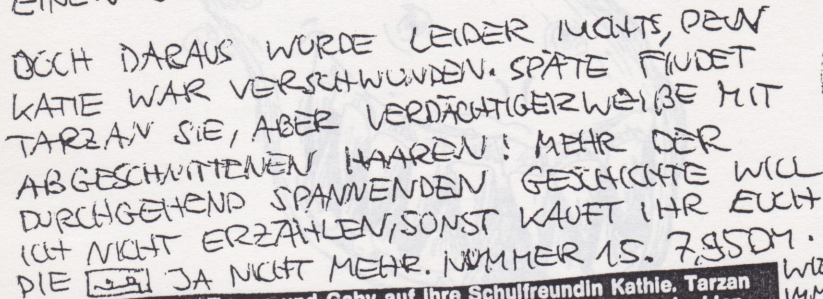 EINEN
DOCH DARAUS WURDE LEIDER NICHTS, DENN
KATIE WAR VERSCHWUNDEN. SPÄTE FINDET
TARZAN SIE, ABER VERDÄCHTIGERWEIßE MIT
ABGESCHNITTENEN HAAREN! MEHR DER
DURCHGEHEND SPANNENDEN GESCHICHTE WILL
ICH NICHT ERZÄHLEN, SONST KAUFT IHR EUCH
DIE JA NICHT MEHR. NUMMER 15. 7,95DM.
und Gaby auf ihre Schulfreundin Kathie. Tarzan